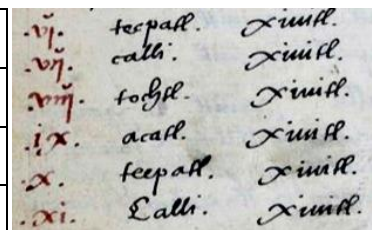 .vj. tecpatl. xiuitl.
.vij. calli. xiuitl.
.viij. tochtl. xiuitl.
.ix. acatl. xiuitl.
.x. tecpatl. xiuitl.
.xi. Calli. xiuitl.